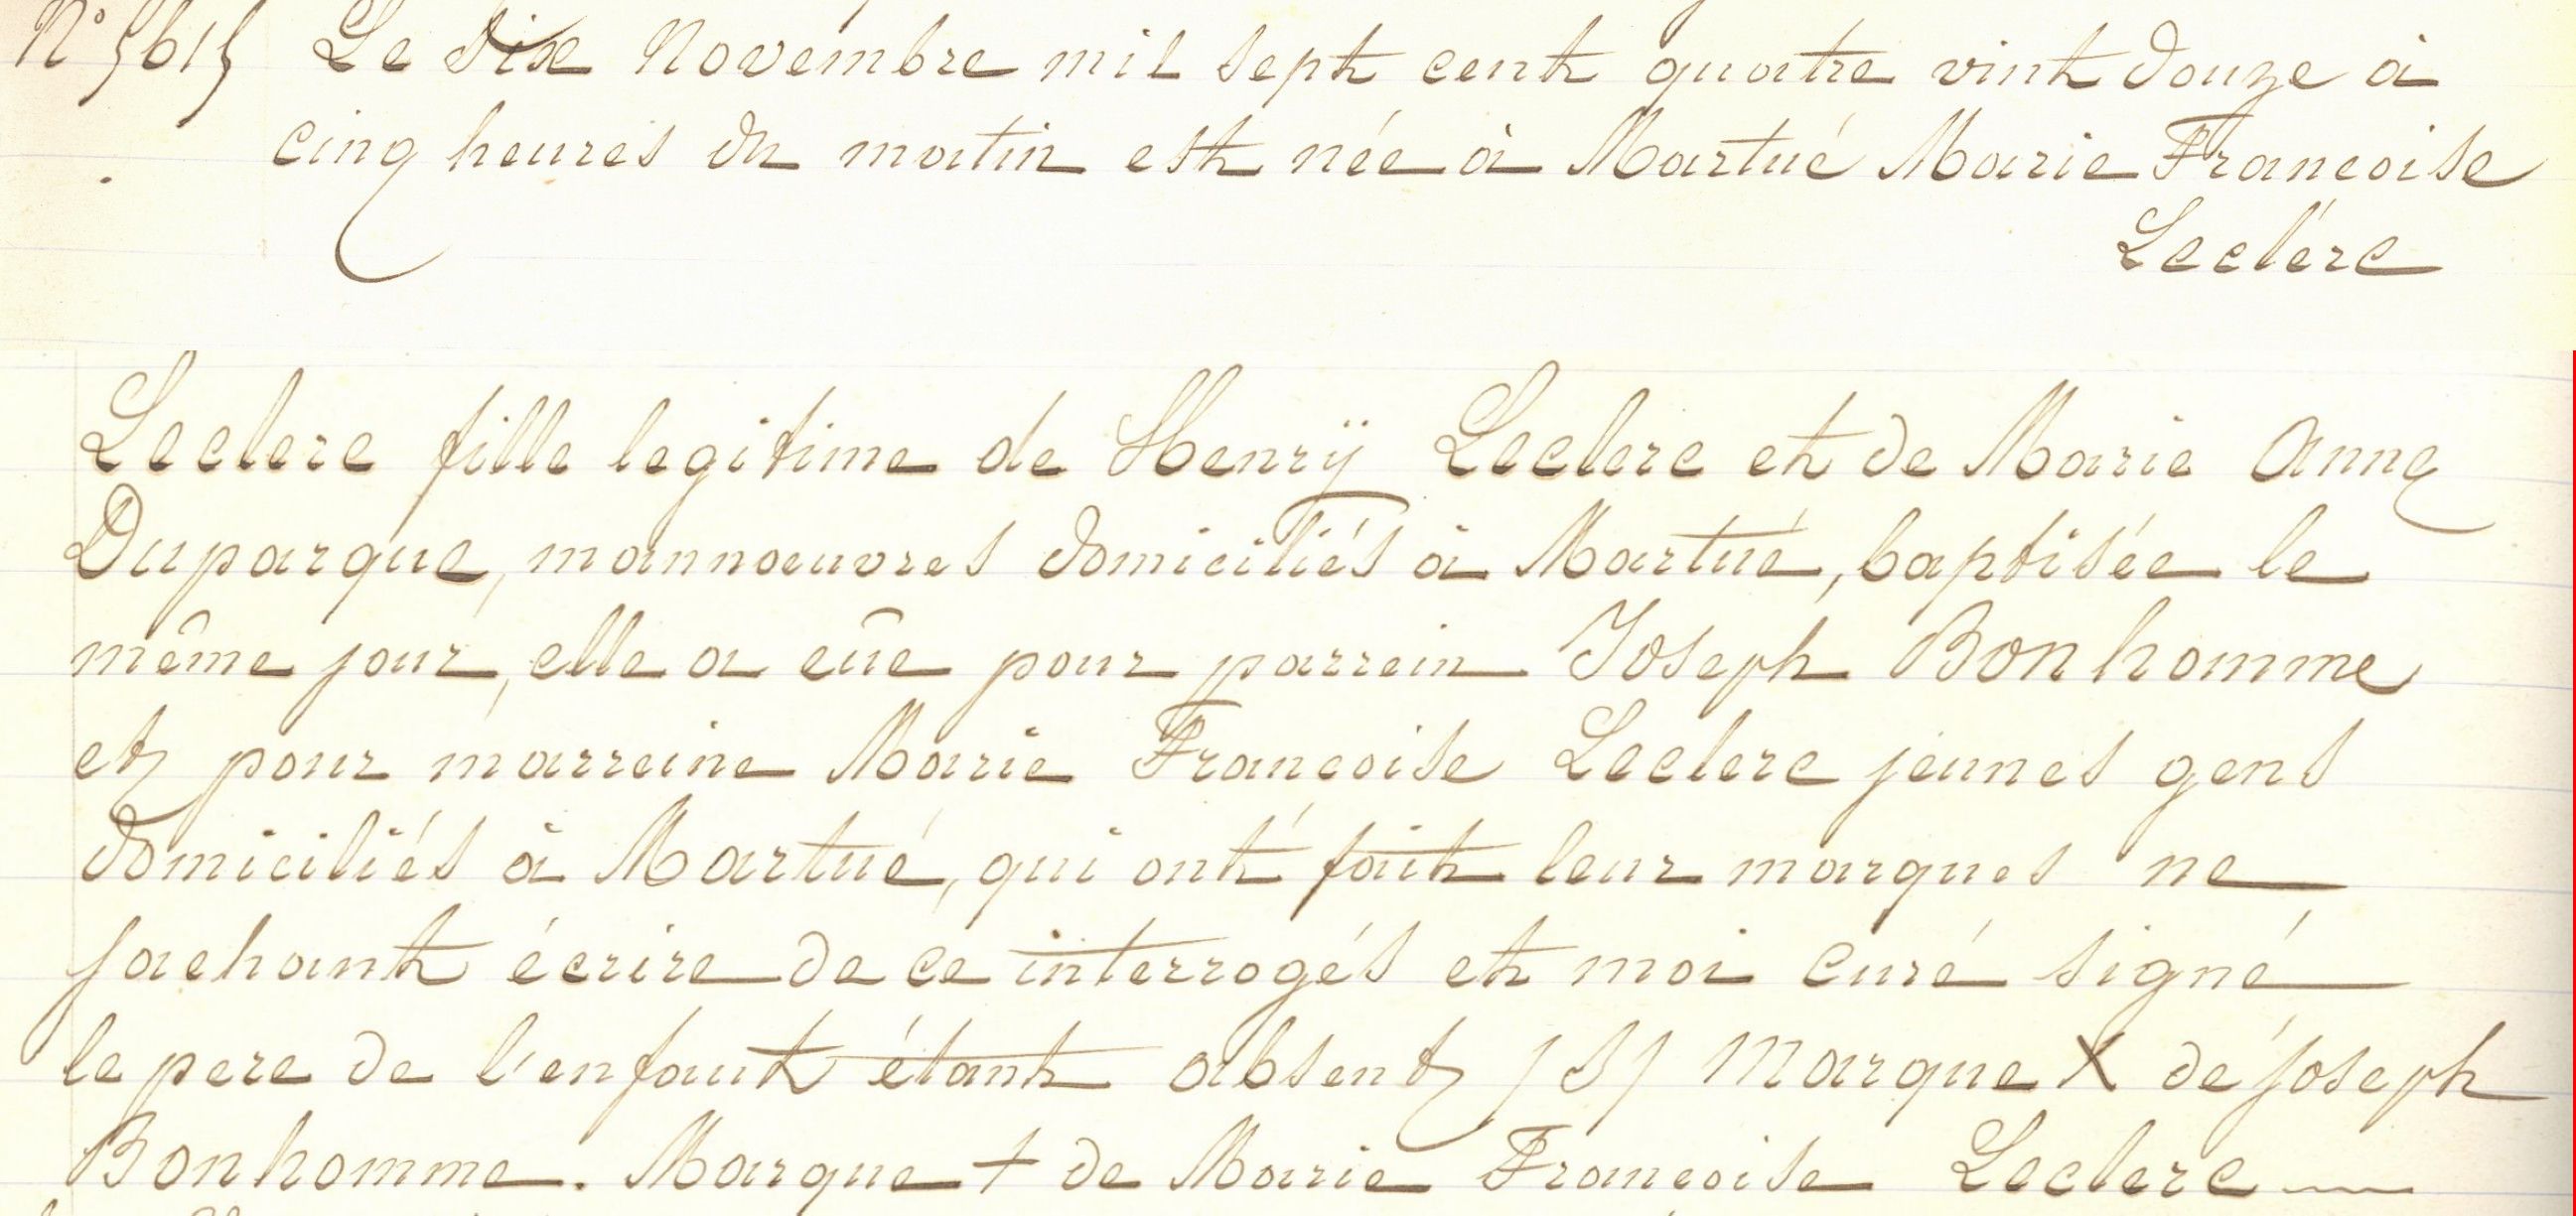 N° 5615 Le dix Novembre mil sept cent quatre vint douze à
cinq heures du matin est née à Martué Marie Francoise
Leclére
Leclerc fille legitime de Henrÿ Leclerc et de Marie Anne
Duparque, mannoeuvres domiciliés à Martué, baptisée le
même jour, elle a eûe pour parrein Joseph Bonhomme
et pour marreine Marie Francoise Leclerc jeunes gens
domiciliés à Martué, qui ont fait leur marques ne
sachant écrire de ce interrogés et moi curé signé
le pere de l'enfant étant absent /S/ Marque X de Joseph
Bonhomme. Marque + de Marie Francoise Leclerc